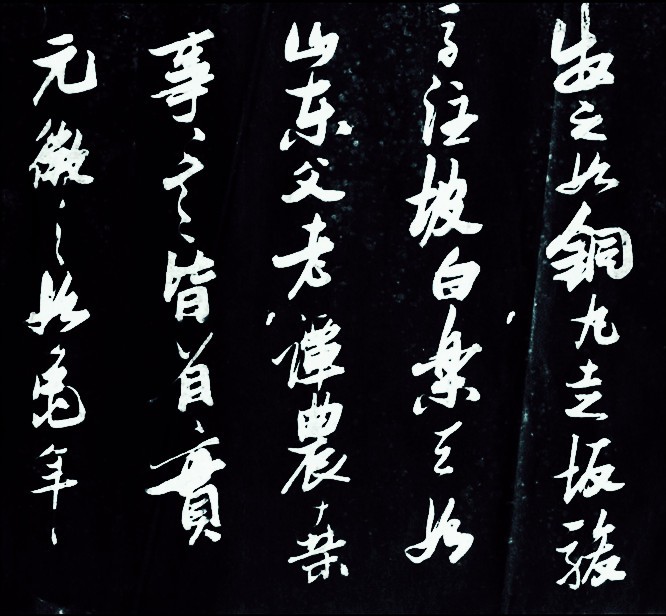 牧之如銅丸走坂駿
馬注坡白樂天如
山東父老譚農桑
事〻言〻皆着實
元微之如龜年